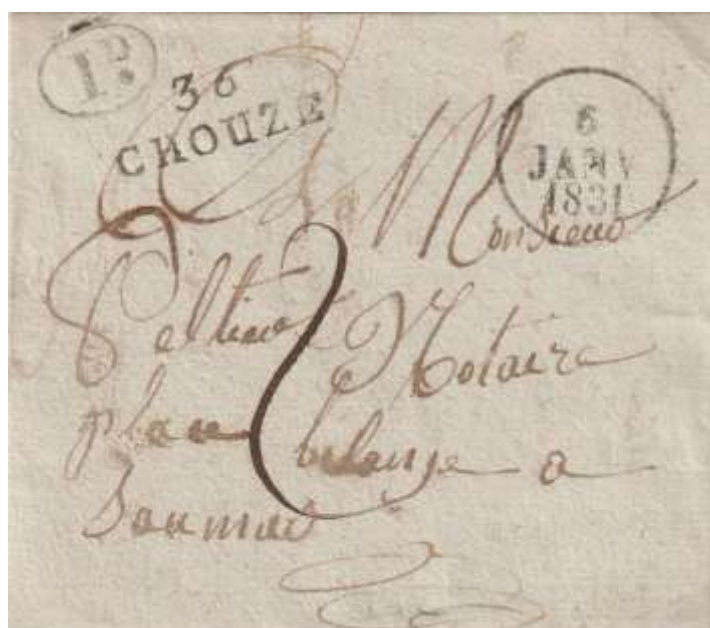 1D
36
CHOUZE
6
JANV
1831
a Monsieur
Notaire
place a
Saumur
2